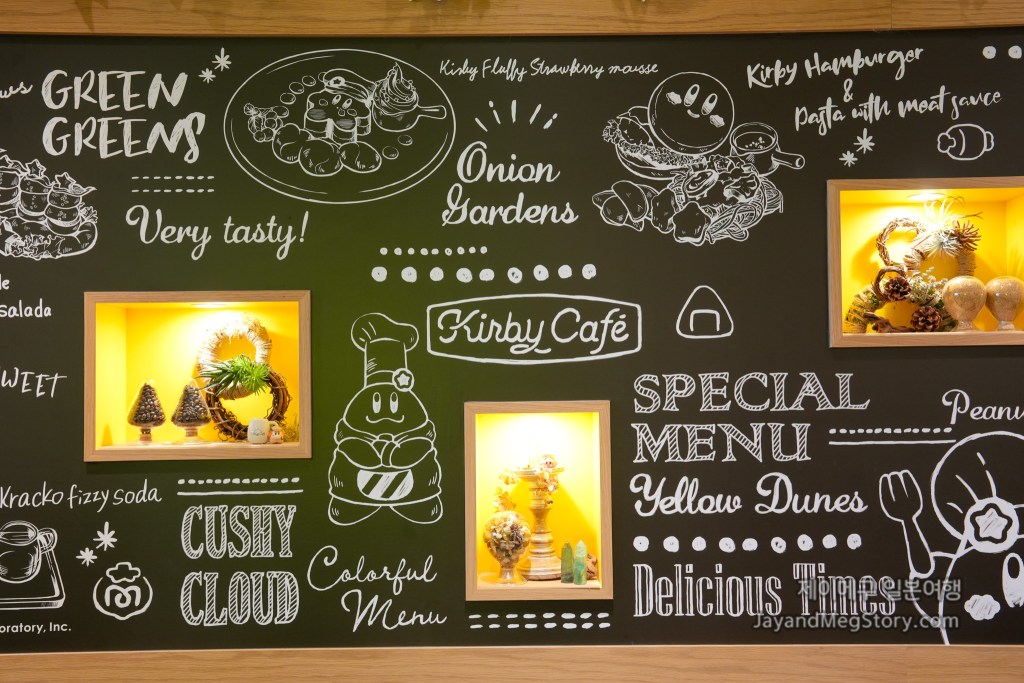 GREEN
GREENS
Very tasty!
Kirby Fluffy Strawberry mousse
Onion
Gardens
Kirby Hamburger
&
Pasta with meat sauce
Salada
WEET
Kirby Café
SPECIAL
MENU
Yellow Dunes
Delicious Times
Peanu
Kracko fizzy soda
CUSHY
CLOUD
Colorful
Menu
oratory, Inc.
제이메구 일본여행
JayandMegStory.com